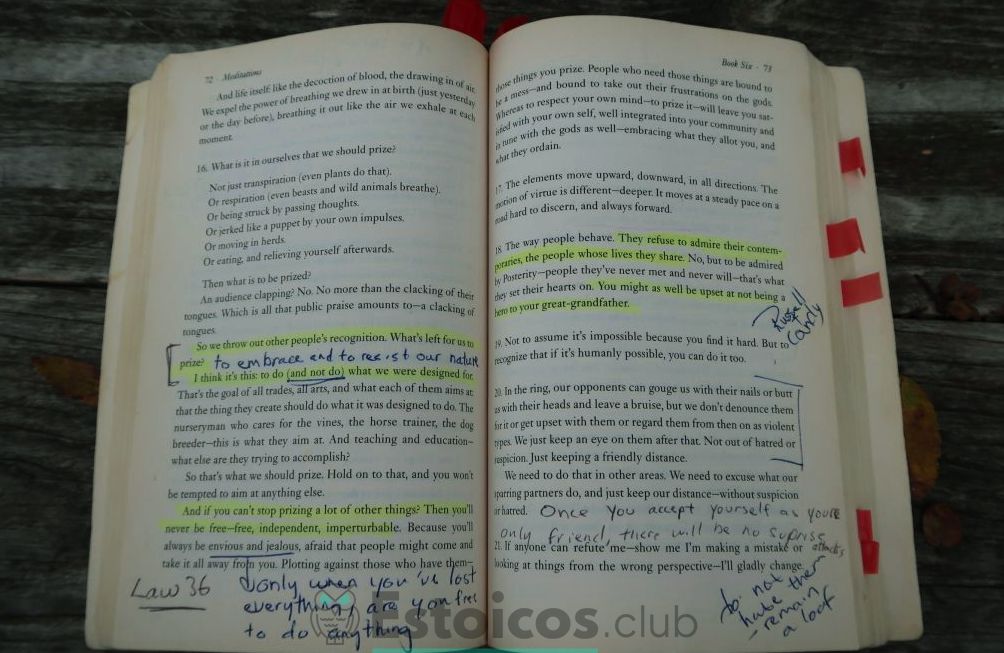 72 · Meditations
And life itself: like the decoction of blood, the drawing in of air.
We expel the power of breathing we drew in at birth (just yesterday
or the day before), breathing it out like the air we exhale at each
moment.
16. What is it in ourselves that we should prize?
Not just transpiration (even plants do that).
Or respiration (even beasts and wild animals breathe).
Or being struck by passing thoughts.
Or jerked like a puppet by your own impulses.
Or moving in herds.
Or eating, and relieving yourself afterwards.
Then what is to be prized?
An audience clapping? No. No more than the clacking of their
tongues. Which is all that public praise amounts to—a clacking of
tongues.
So we throw out other people's recognition. What's left for us to
prize? to embrace and to resist our nature
I think it's this: to do (and not do) what we were designed for.
That's the goal of all trades, all arts, and what each of them aims at:
that the thing they create should do what it was designed to do. The
nurseryman who cares for the vines, the horse trainer, the dog
breeder—this is what they aim at. And teaching and education—
what else are they trying to accomplish?
So that's what we should prize. Hold on to that, and you won't
be tempted to aim at anything else.
And if you can't stop prizing a lot of other things? Then you'll
never be free—free, independent, imperturbable. Because you'll
always be envious and jealous, afraid that people might come and
take it all away from you. Plotting against those who have them—
Law 36
only when you've lost
everything are you free
to do anything
Book Six · 73
those things you prize. People who need those things are bound to
be a mess—and bound to take out their frustrations on the gods.
Whereas to respect your own mind—to prize it—will leave you sat-
isfied with your own self, well integrated into your community and
in tune with the gods as well—embracing what they allot you, and
what they ordain.
17. The elements move upward, downward, in all directions. The
motion of virtue is different—deeper. It moves at a steady pace on a
road hard to discern, and always forward.
18. The way people behave. They refuse to admire their contem-
poraries, the people whose lives they share. No, but to be admired
by Posterity—people they've never met and never will—that's what
they set their hearts on. You might as well be upset at not being a
hero to your great-grandfather.
19. Not to assume it's impossible because you find it hard. But to
recognize that if it's humanly possible, you can do it too.
20. In the ring, our opponents can gouge us with their nails or butt
us with their heads and leave a bruise, but we don't denounce them
for it or get upset with them or regard them from then on as violent
types. We just keep an eye on them after that. Not out of hatred or
suspicion. Just keeping a friendly distance.
We need to do that in other areas. We need to excuse what our
sparring partners do, and just keep our distance—without suspicion
or hatred. Once you accept yourself as youre
only friend, there will be no suprise
attacks
21. If anyone can refute me—show me I'm making a mistake or
looking at things from the wrong perspective—I'll gladly change.
to not
hate them
- remain
a loof
Estoicos.club